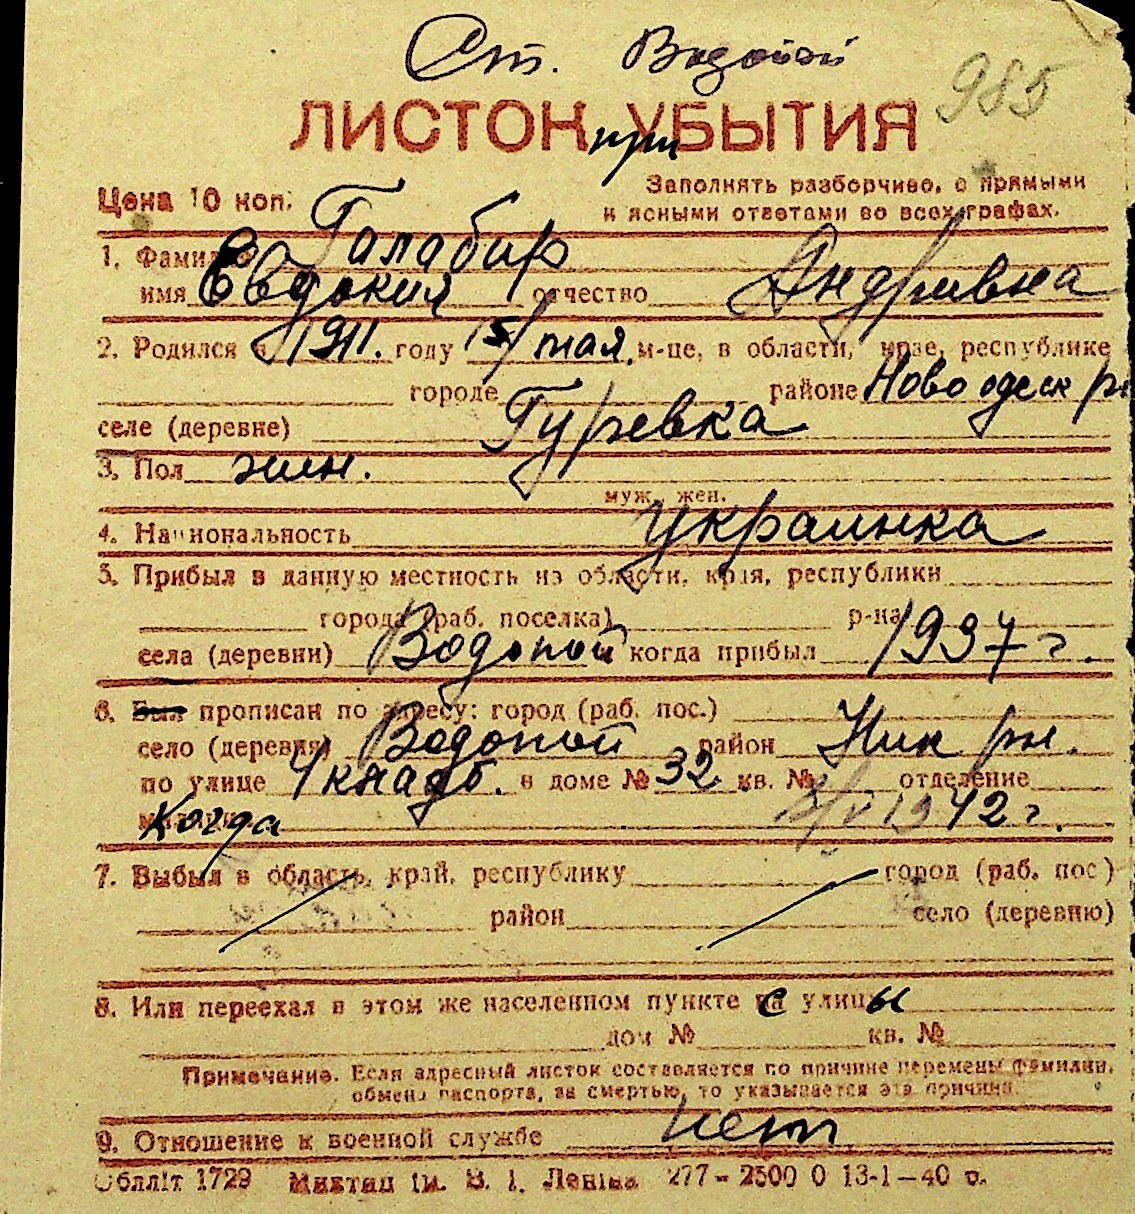 Ст. Водопой
985
ЛИСТОК УБЫТИЯ
при
Цена 10 коп.
Заполнять разборчиво, с прямыми
и ясными ответами во всех графах.
1. Фамилия Галабир
имя Евдокия отчество Андривна
2. Родился в 1911. году 15/ мая м-це, в области, крае, республике
городе районе Новоодеск рн
селе (деревне) Гурьевка
3. Пол жен.
муж., жен.
4. Национальность украинка
5. Прибыл в данную местность из области, края, республики
города (раб. поселка) р-на
села (деревни) Водопой когда прибыл 1937 г.
6. Был прописан по адресу: город (раб. пос.)
село (деревня) Водопой район Ник рн.
по улице в доме № 32 кв. № отделение
Когда 1942 г.
7. Выбыл в область, край, республику город (раб. пос)
район село (деревню)
8. Или переехал в этом же населенном пункте с улицы
дом № кв. №
Примечание. Если адресный листок составляется по причине перемены фамилии,
обмена паспорта, за смертью, то указывается эта причина.
9. Отношение к военной службе нет
Облліт 1729 Миктип ім. В. І. Леніна 277 - 2500 0 13-1-40 р.